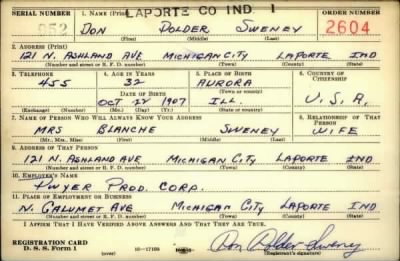 LAPORTE CO IND. 1
SERIAL NUMBER 1. NAME (Print) ORDER NUMBER
952 DON DOLDER SWENEY 2604
(First) (Middle) (Last)
2. ADDRESS (Print)
121 N. ASHLAND AVE MICHIGAN CITY LAPORTE IND
(Number and street or R. F. D. number) (Town) (County) (State)
3. TELEPHONE 4. AGE IN YEARS 5. PLACE OF BIRTH 6. COUNTRY OF CITIZENSHIP
455 32 AURORA
DATE OF BIRTH (Town or county)
OCT 22 1907 ILL. U.S.A.
(Exchange) (Number) (Mo.) (Day) (Yr.) (State or country)
7. NAME OF PERSON WHO WILL ALWAYS KNOW YOUR ADDRESS 8. RELATIONSHIP OF THAT PERSON
MRS BLANCHE SWENEY WIFE
(Mr., Mrs., Miss) (First) (Middle) (Last)
9. ADDRESS OF THAT PERSON
121 N. ASHLAND AVE MICHIGAN CITY LAPORTE IND
(Number and street or R. F. D. number) (Town) (County) (State)
10. EMPLOYER'S NAME
DWYER PROD. CORP.
11. PLACE OF EMPLOYMENT OR BUSINESS
N. CALUMET AVE MICHIGAN CITY LAPORTE IND
(Number and street or R. F. D. number) (Town) (County) (State)
I AFFIRM THAT I HAVE VERIFIED ABOVE ANSWERS AND THAT THEY ARE TRUE.
REGISTRATION CARD
D. S. S. Form 1 (over) 16—17105 Don Dolder Sweney
(Registrant's signature)